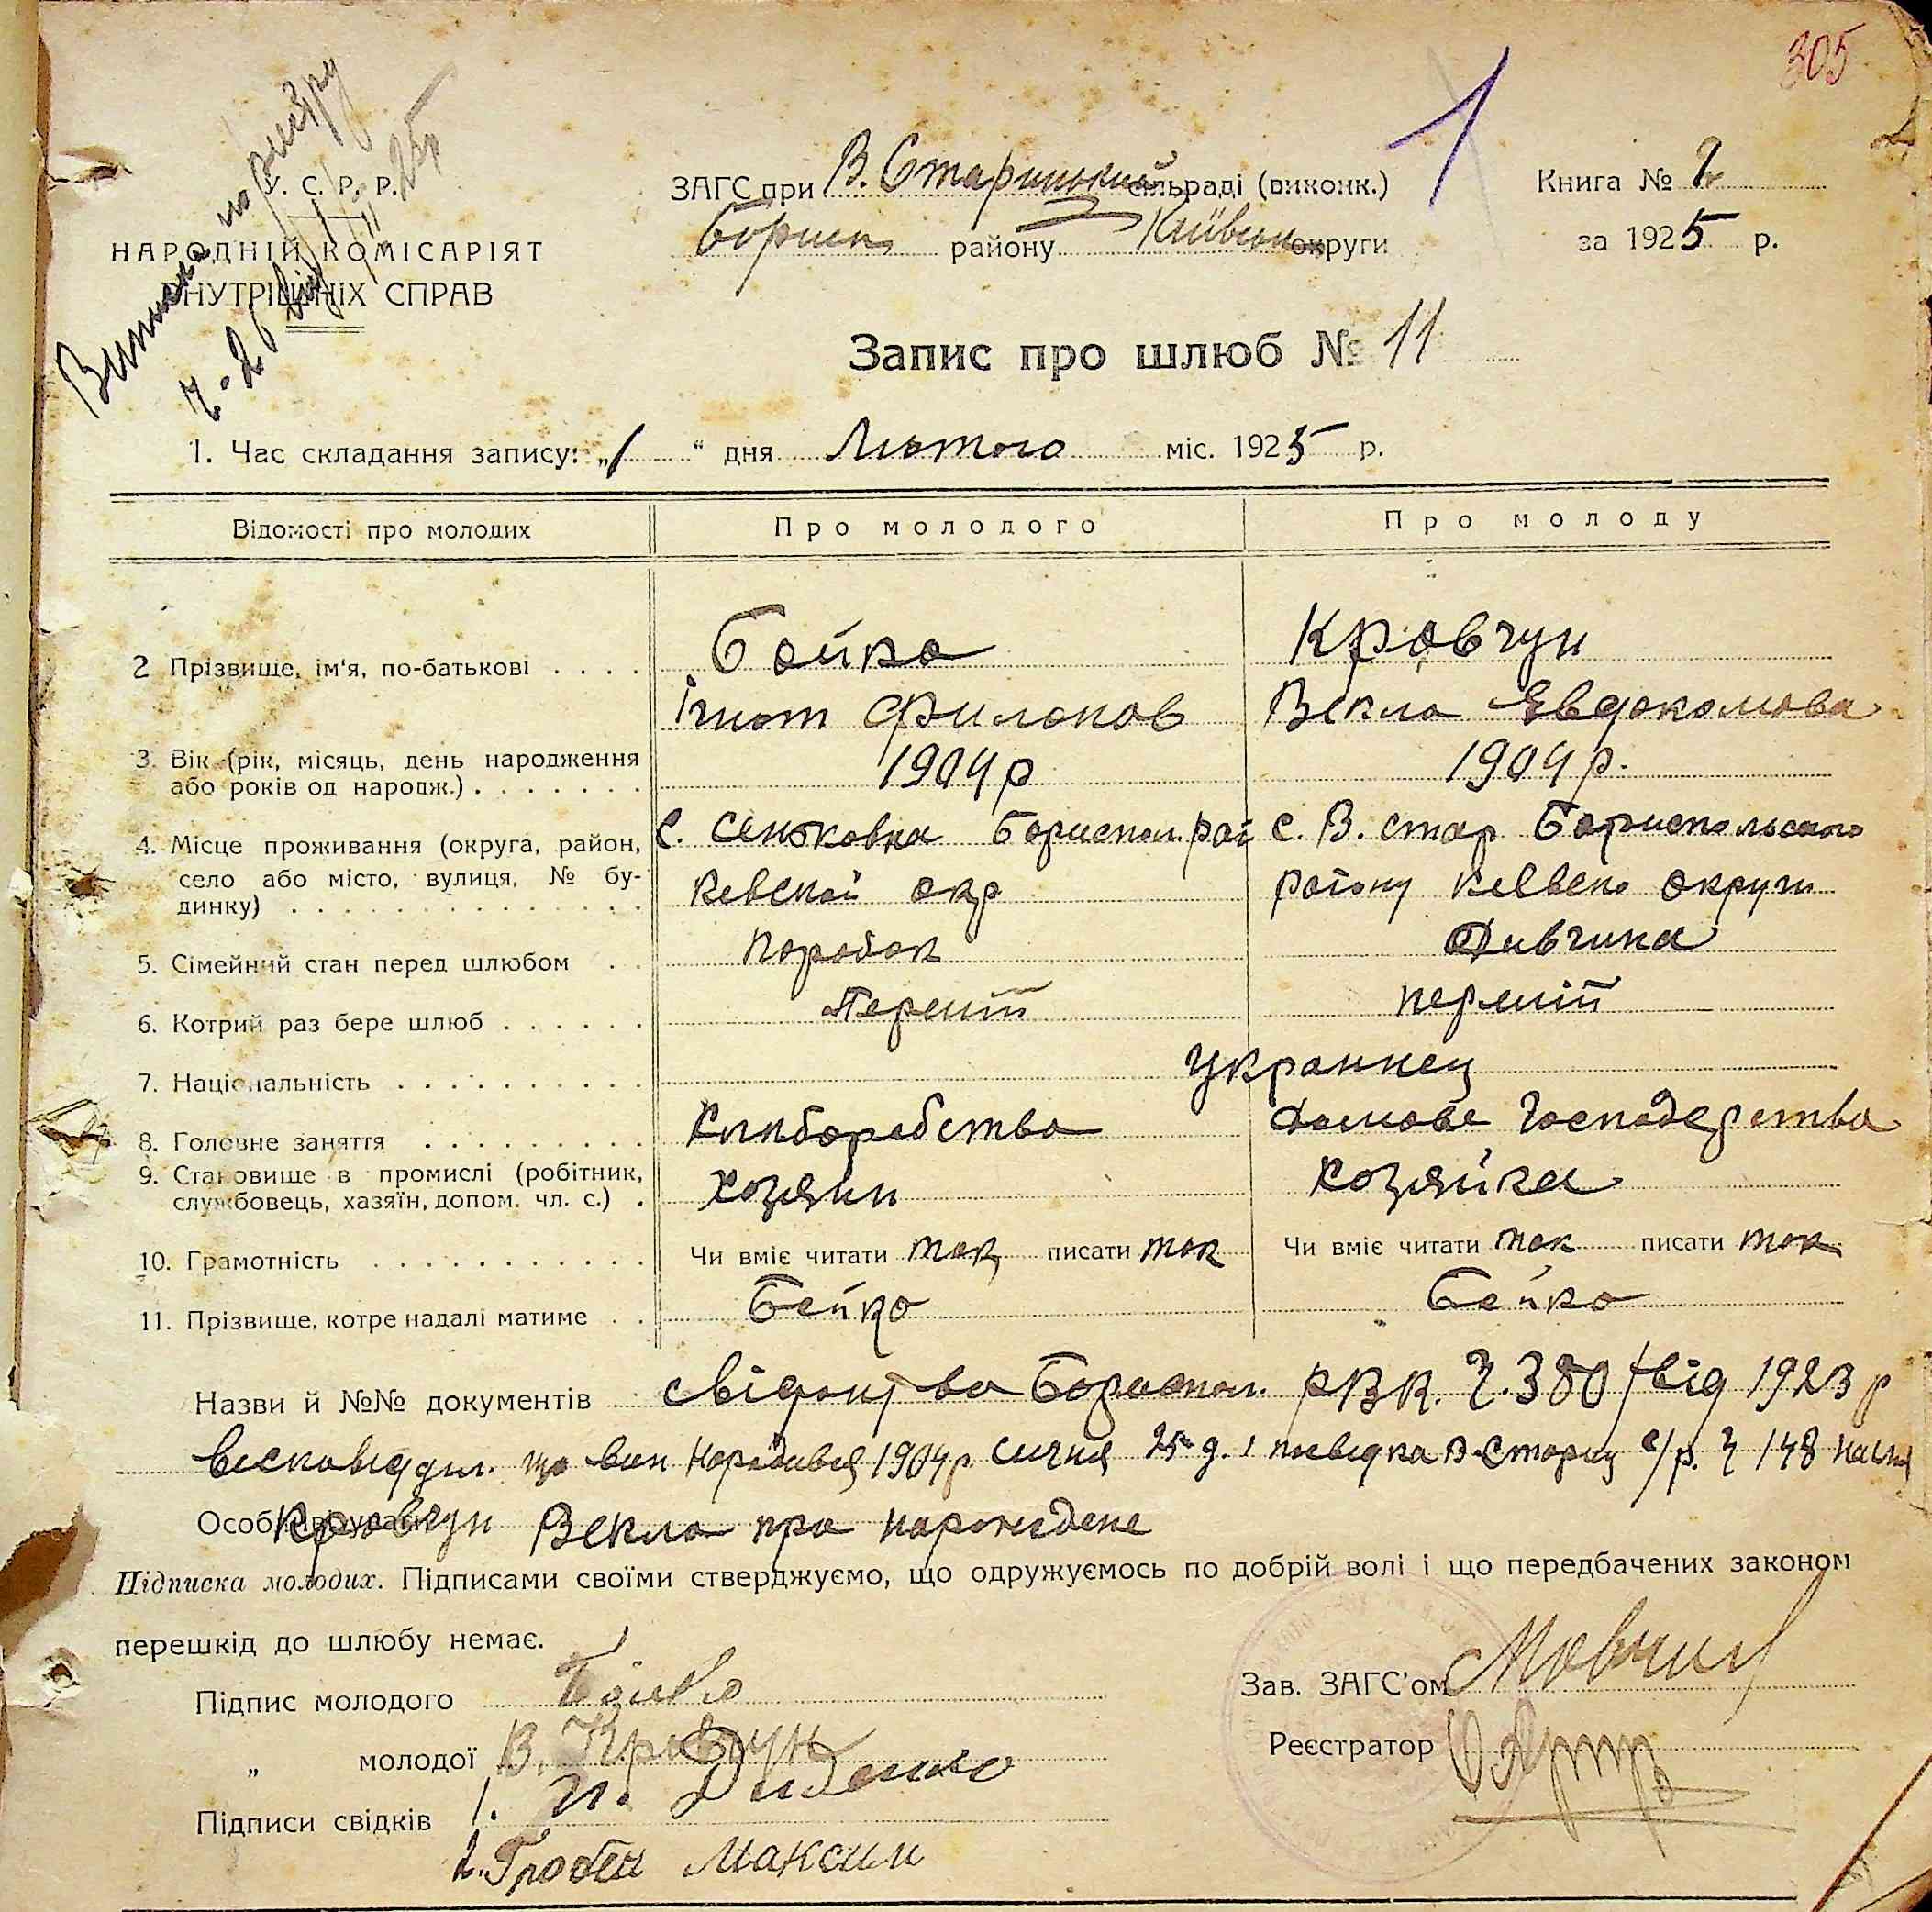 305
1
У. С. Р. Р.
НАРОДНІЙ КОМІСАРІЯТ
ВНУТРІШНІХ СПРАВ
ЗАГС при В. Старицький сільраді (виконк.)
Борисп району Київськ округи
Книга № 1
за 1925 р.
Запис про шлюб № 11
1. Час складання запису: „1“ дня Лютого міс. 1925 р.
Відомості про молодих Про молодого Про молоду
2 Прізвище, ім'я, по-батькові . . . . Бойко Кровчун
Ігнат Филонов Векла Євдокомова
3. Вік (рік, місяць, день народження 1904 р 1904 р.
або років од народж.) . . . . . . .
4. Місце проживання (округа, район, с. Сеньковка Бориспол. рай с. В. стар Бориспольского
село або місто, вулиця, № бу- Кевской окр району Киевско округи
динку) . . . . . . . . . . . . .
5. Сімейний стан перед шлюбом . . поробок Дивчина
6. Котрий раз бере шлюб . . . . . . Перший перший
7. Національність . . . . . . . . . . Украинец
8. Головне заняття . . . . . . . . . Хлиборобство Домове Господерства
9. Становище в промислі (робітник, хозяин хозяйка
службовець, хазяїн, допом. чл. с.) .
10. Грамотність . . . . . . . . . . . Чи вміє читати так писати так Чи вміє читати так писати так
11. Прізвище, котре надалі матиме . . Бойко Бойко
Назви й №№ документів свідоцтво Бориспол. РВК. Ч. 380 від 1923 р
що вин народився 1904 р сичня 25 д. і посвідка В-Стариц с/р. Ч 148 на имя
Особ Кровчун Векла про нарождене
Підписка молодих. Підписами своїми стверджуємо, що одружуємось по добрій волі і що передбачених законом
перешкід до шлюбу немає.
Підпис молодого Бойко
„ молодої В. Кровчун
Підписи свідків 1. Диденко
2. Максим
Зав. ЗАГС'ом Мовчан
Реєстратор